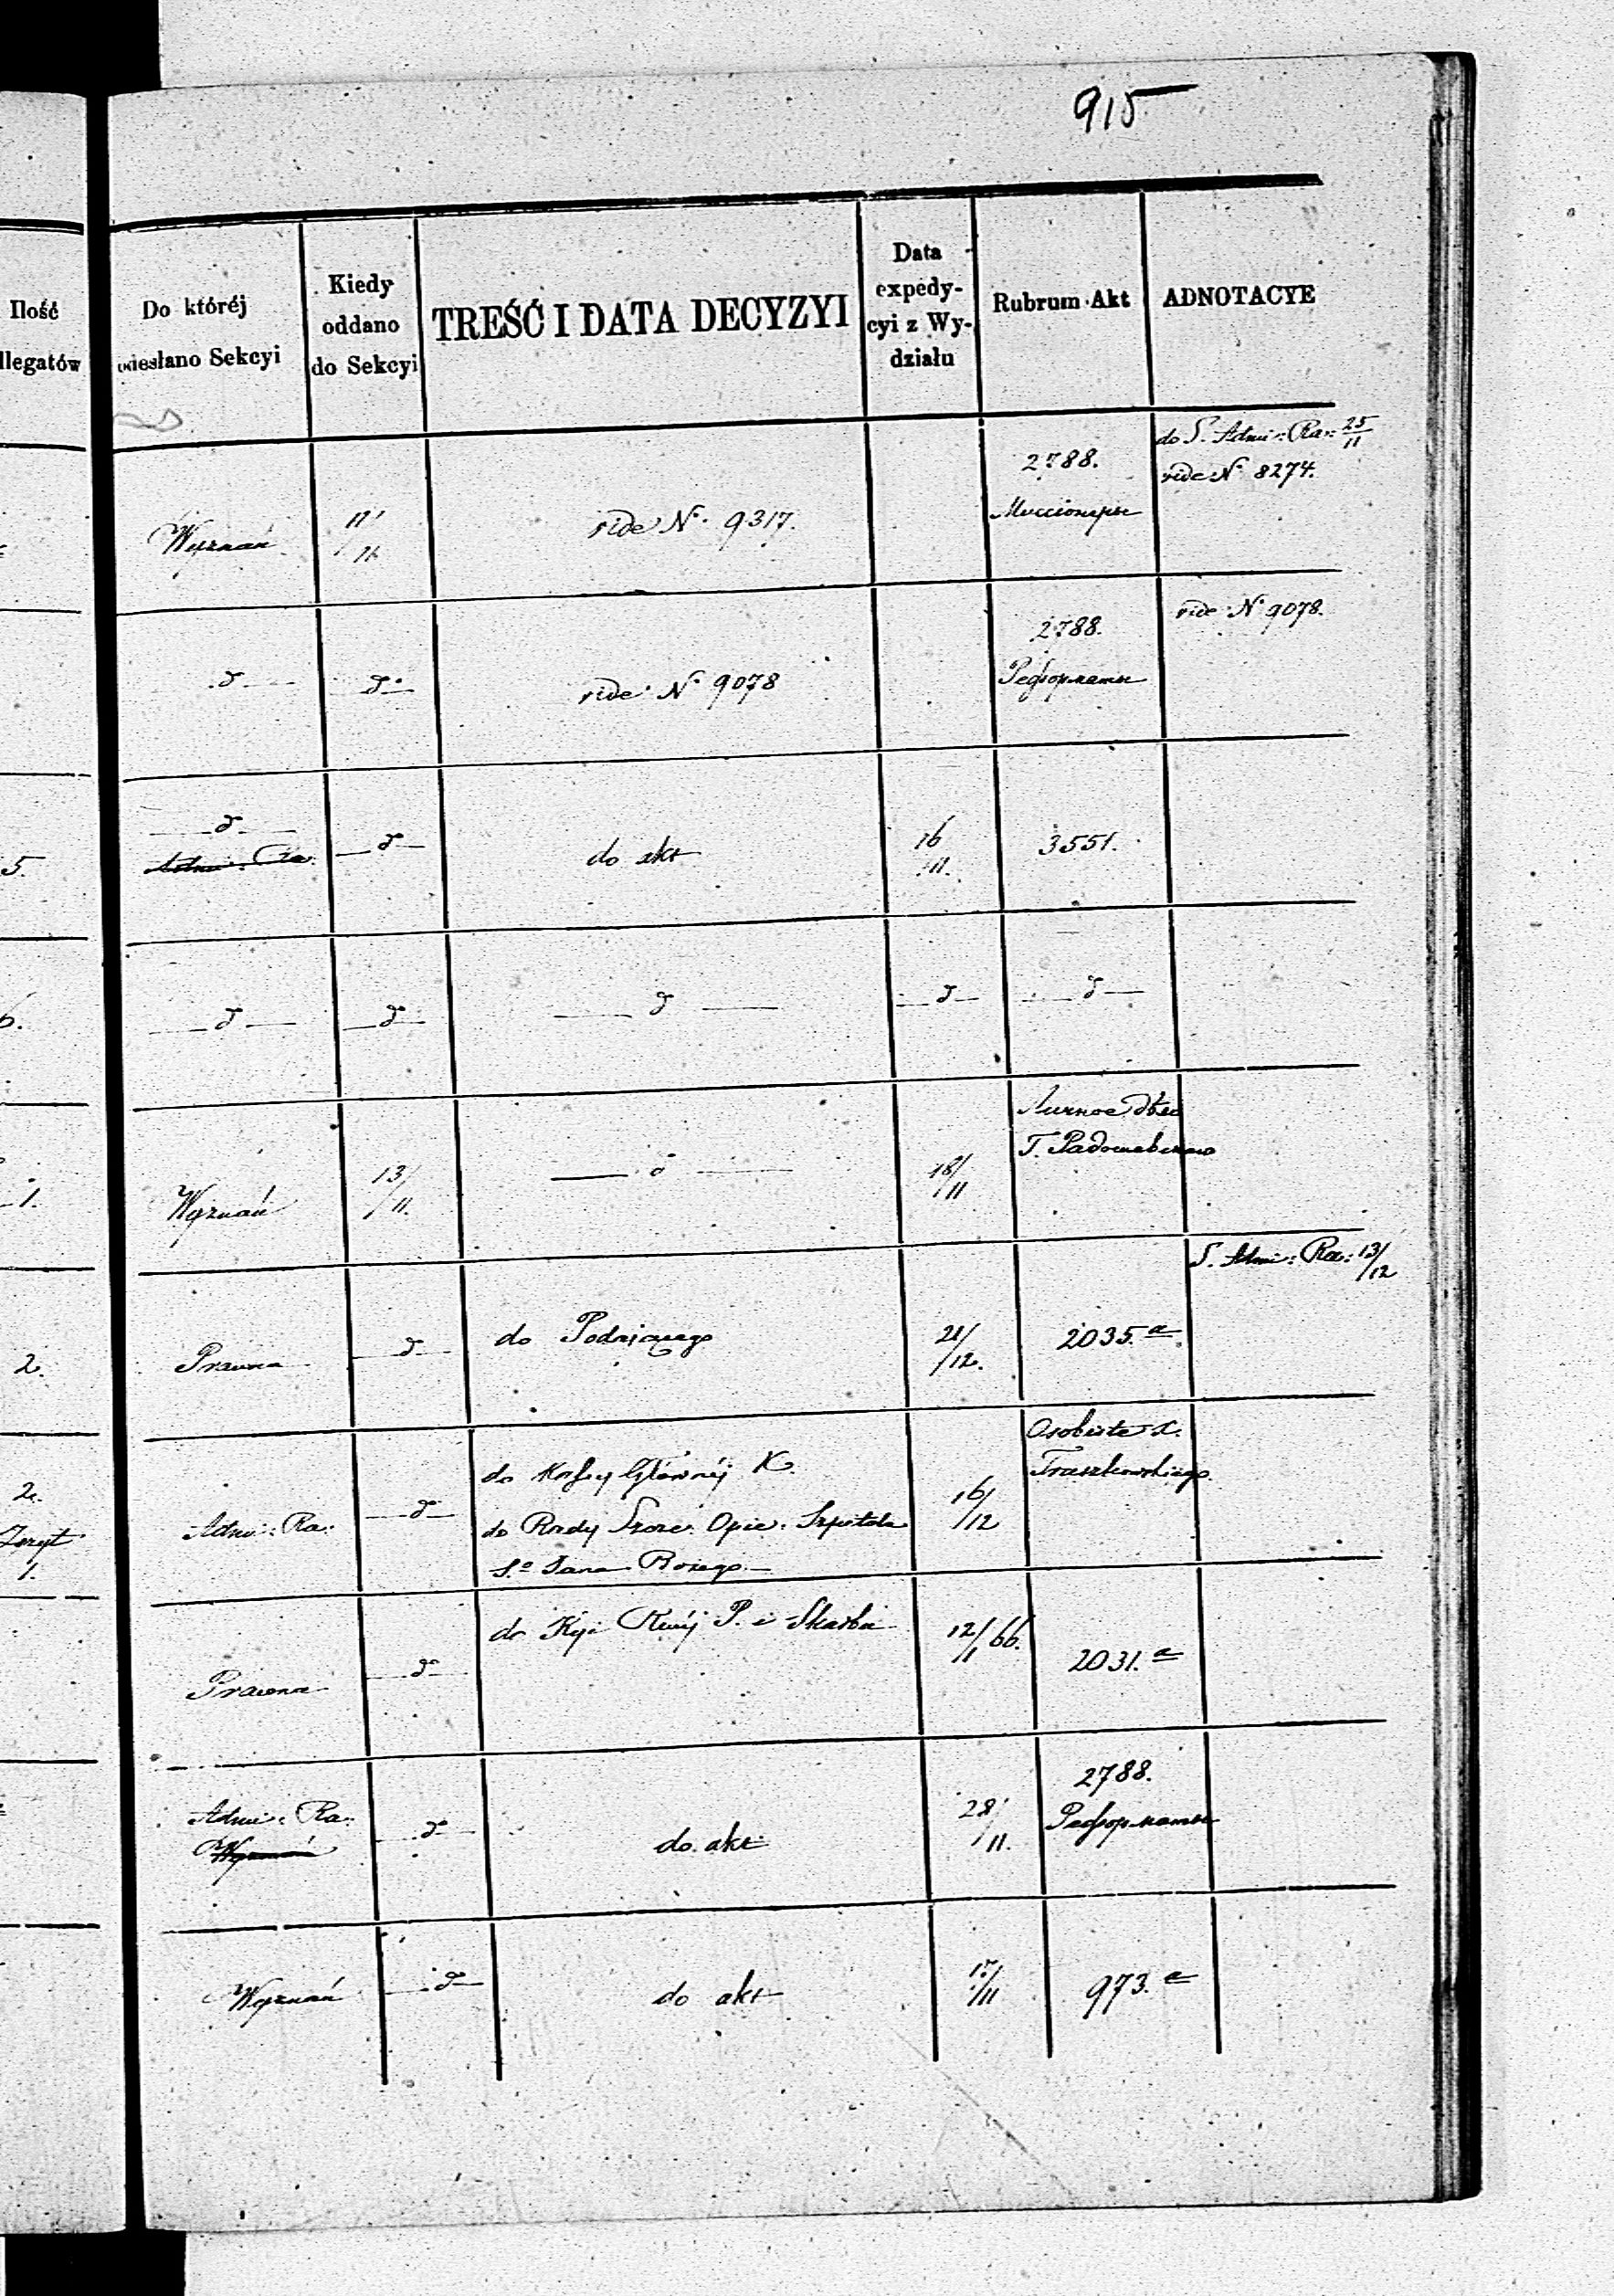 915
Ilość
llegatów
Do któréj
wiesłano Sekcyi
Kiedy
oddano
do Sekcyi
TREŚĆ I DATA DECYZYI
Data
expedy-
cyi z Wy-
działu
Rubrum Akt
ADNOTACYE
Wyznań
11/11
vide N. 9317.
2788.
Миссіонеры
do S. Admi: Ra: 25/11
vide N. 8274.
d
do
vide N. 9078
2788.
Реформаты
vide N. 9078.
5.
d
Admi: Ra:
do
do akt
16
11.
3551.
6.
d
do
d
d
d
1.
Wyznań
13/11.
d
18/11
Личное дѣло
2.
Prawna
do
do Podającego
21/12.
2035.a
S. Admi: Ra: 13/12
2.
Zeszyt
1.
Admi: Ra:
do
do Kassy Głównéj K.
do Rady Szcze: Opie: Szpitala
S.o Jana Bożego
16/12
Osobiste X.
Truszkowskiego
Prawna
do
do Kyi Rwéj P. i Skarbu
12/1 66.
2031.a
Admi: Ra:
Wyznań
do
do akt
28/11.
2788.
Реформаты
Wyznań
do
do akt
17/11
973.a